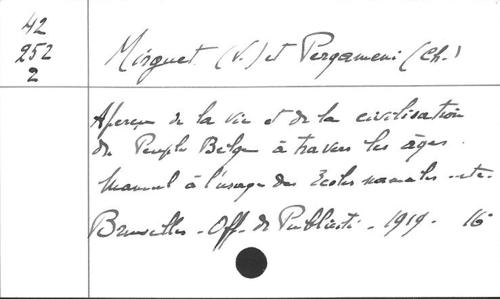 42
252
2
Mirguet (V.) et Pergameni (Ch.)
Aperçu de la vie et de la civilisation
du Peuple Belge à travers les âges.
Manuel à l'usage des Ecoles normales - etc.
Bruxelles - Off. de Publicité - 1919 - 16°